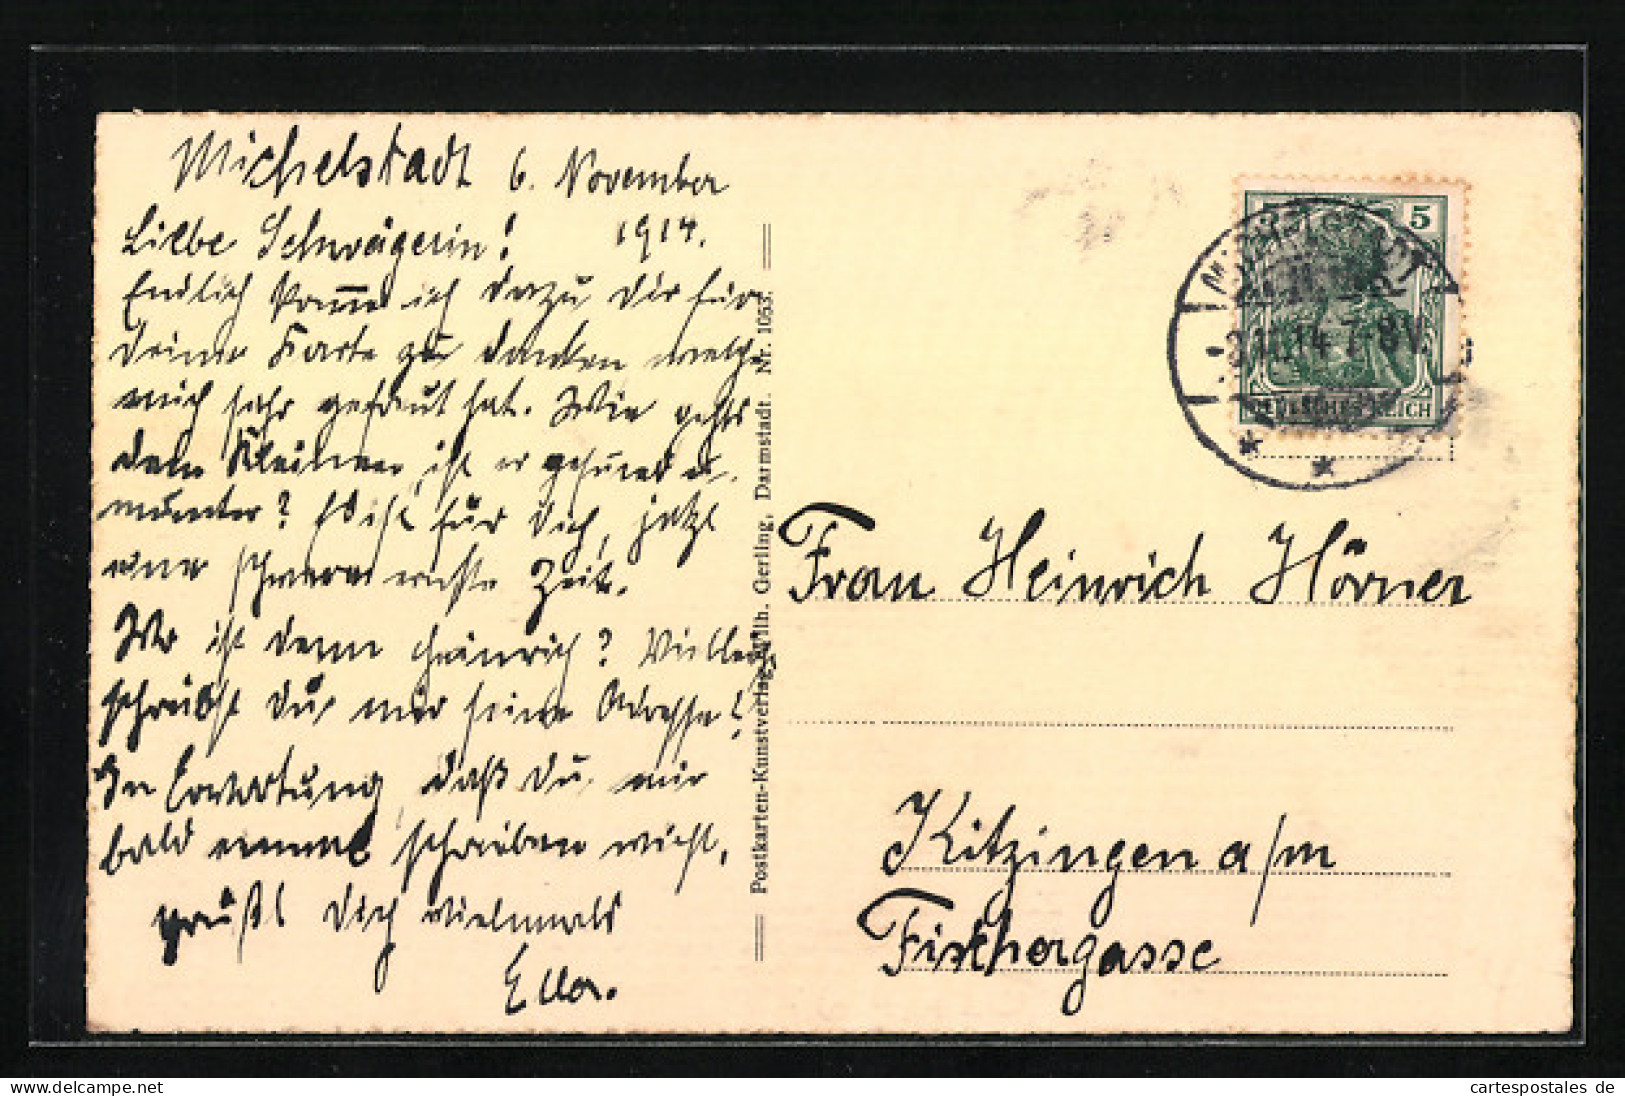 Michelstadt 6. November
1914.
Liebe Schwägerin!
Endlich komme ich dazu Dir für
Deine Karte zu danken welche
mich sehr gefreut hat. Wie gehts
dem Kleinen, ist er gesund u.
munter? Es ist für Dich, jetzt
eine schwere ernste Zeit.
Wo ist denn Heinrich? Vielleicht
schreibst Du, mir seine Adresse!
In Erwartung, daß Du, mir
bald einmal schreiben wirst,
grüßt Dich vielmals
Ella.
Postkarten-Kunstverlag Wilh. Gerling, Darmstadt. Nr. 1053.
5
DEUTSCHES REICH
11.14 7-8V.
Frau Heinrich Hörner
Kitzingen a/m
Fischergasse
cartespostales de